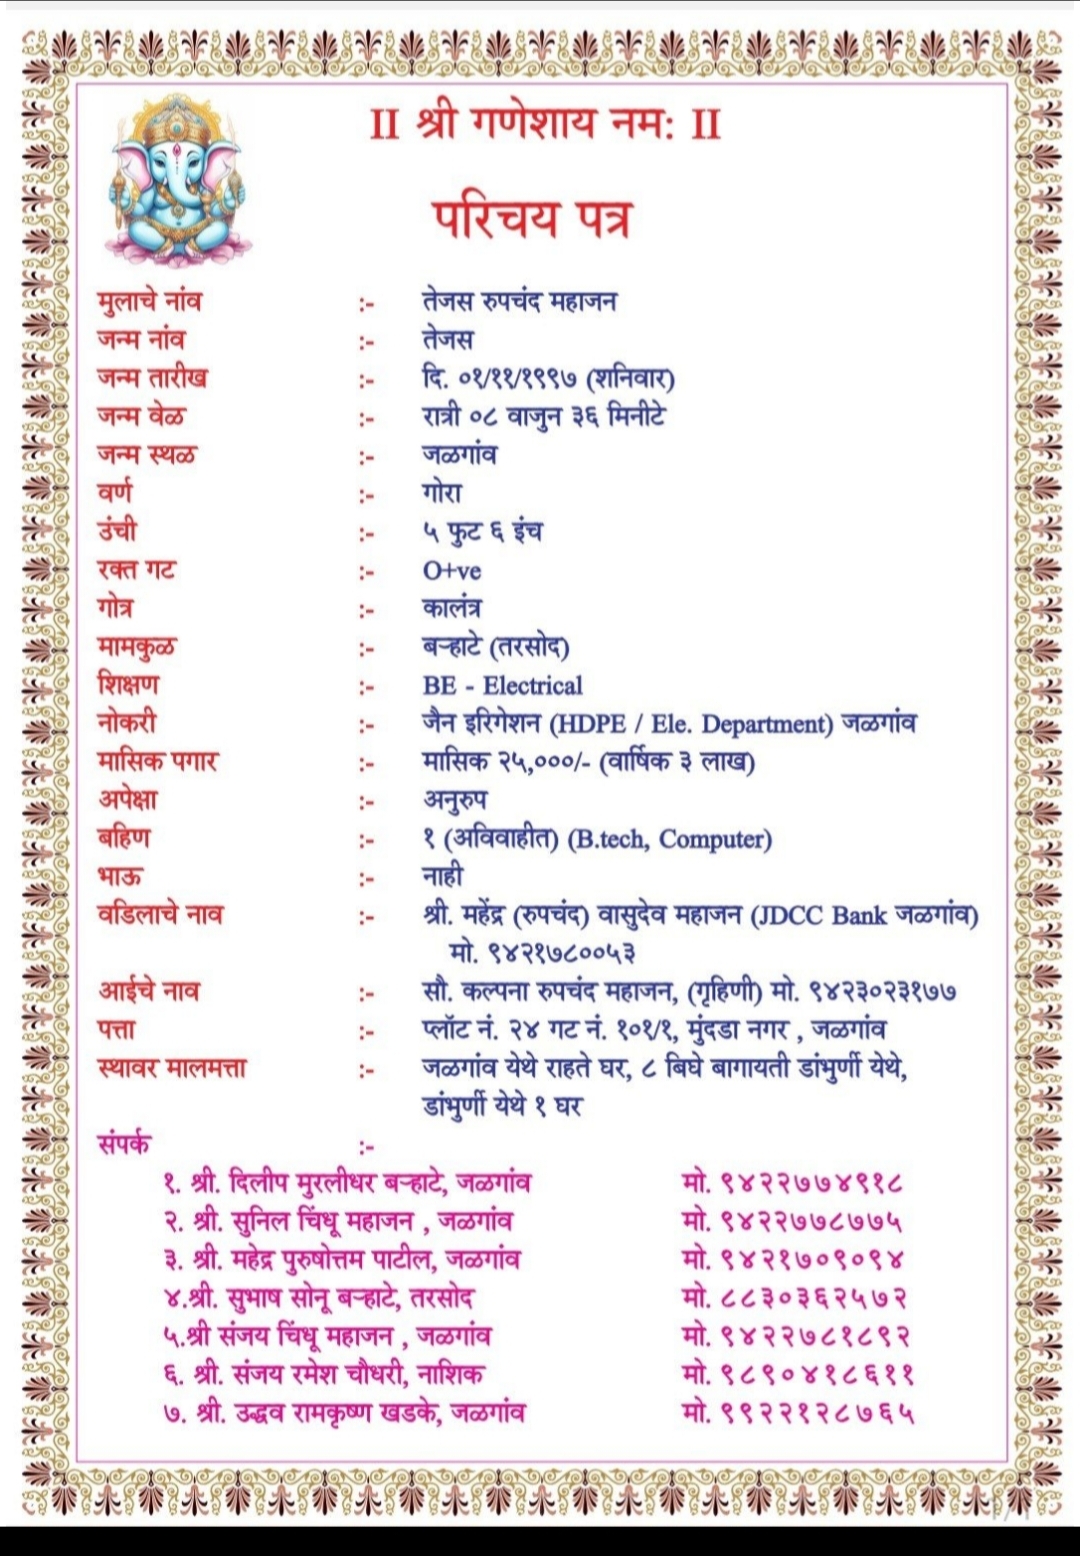 II श्री गणेशाय नम: II
परिचय पत्र
मुलाचे नांव :- तेजस रुपचंद महाजन
जन्म नांव :- तेजस
जन्म तारीख :- दि. ०१/११/१९९७ (शनिवार)
जन्म वेळ :- रात्री ०८ वाजुन ३६ मिनीटे
जन्म स्थळ :- जळगांव
वर्ण :- गोरा
उंची :- ५ फुट ६ इंच
रक्त गट :- O+ve
गोत्र :- कालंत्र
मामकुळ :- बऱ्हाटे (तरसोद)
शिक्षण :- BE - Electrical
नोकरी :- जैन इरिगेशन (HDPE / Ele. Department) जळगांव
मासिक पगार :- मासिक २५,०००/- (वार्षिक ३ लाख)
अपेक्षा :- अनुरुप
बहिण :- १ (अविवाहीत) (B.tech, Computer)
भाऊ :- नाही
वडिलाचे नाव :- श्री. महेंद्र (रुपचंद) वासुदेव महाजन (JDCC Bank जळगांव)
मो. ९४२१७८००५३
आईचे नाव :- सौ. कल्पना रुपचंद महाजन, (गृहिणी) मो. ९४२३०२३१७७
पत्ता :- प्लॉट नं. २४ गट नं. १०१/१, मुंदडा नगर , जळगांव
स्थावर मालमत्ता :- जळगांव येथे राहते घर, ८ बिघे बागायती डांभुर्णी येथे,
डांभुर्णी येथे १ घर
संपर्क :-
१. श्री. दिलीप मुरलीधर बऱ्हाटे, जळगांव मो. ९४२२७७४९१८
२. श्री. सुनिल चिंधू महाजन , जळगांव मो. ९४२२७७८७७५
३. श्री. महेद्र पुरुषोत्तम पाटील, जळगांव मो. ९४२१७०९०९४
४.श्री. सुभाष सोनू बऱ्हाटे, तरसोद मो. ८८३०३६२५७२
५.श्री संजय चिंधू महाजन , जळगांव मो. ९४२२७८१८९२
६. श्री. संजय रमेश चौधरी, नाशिक मो. ९८९०४१८६११
७. श्री. उद्धव रामकृष्ण खडके, जळगांव मो. ९९२२१२८७६५
1 / 1